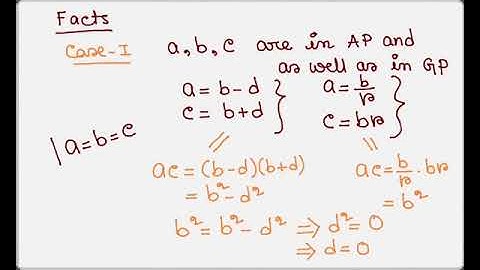 Facts
Case-I a, b, c are in AP and
as well as in GP
a = b-d } a = b/r }
c = b+d } c = br }
| a=b=c
ac = (b-d)(b+d) ac = b/r . br
= b² - d² = b²
b² = b² - d² ⇒ d² = 0
⇒ d = 0